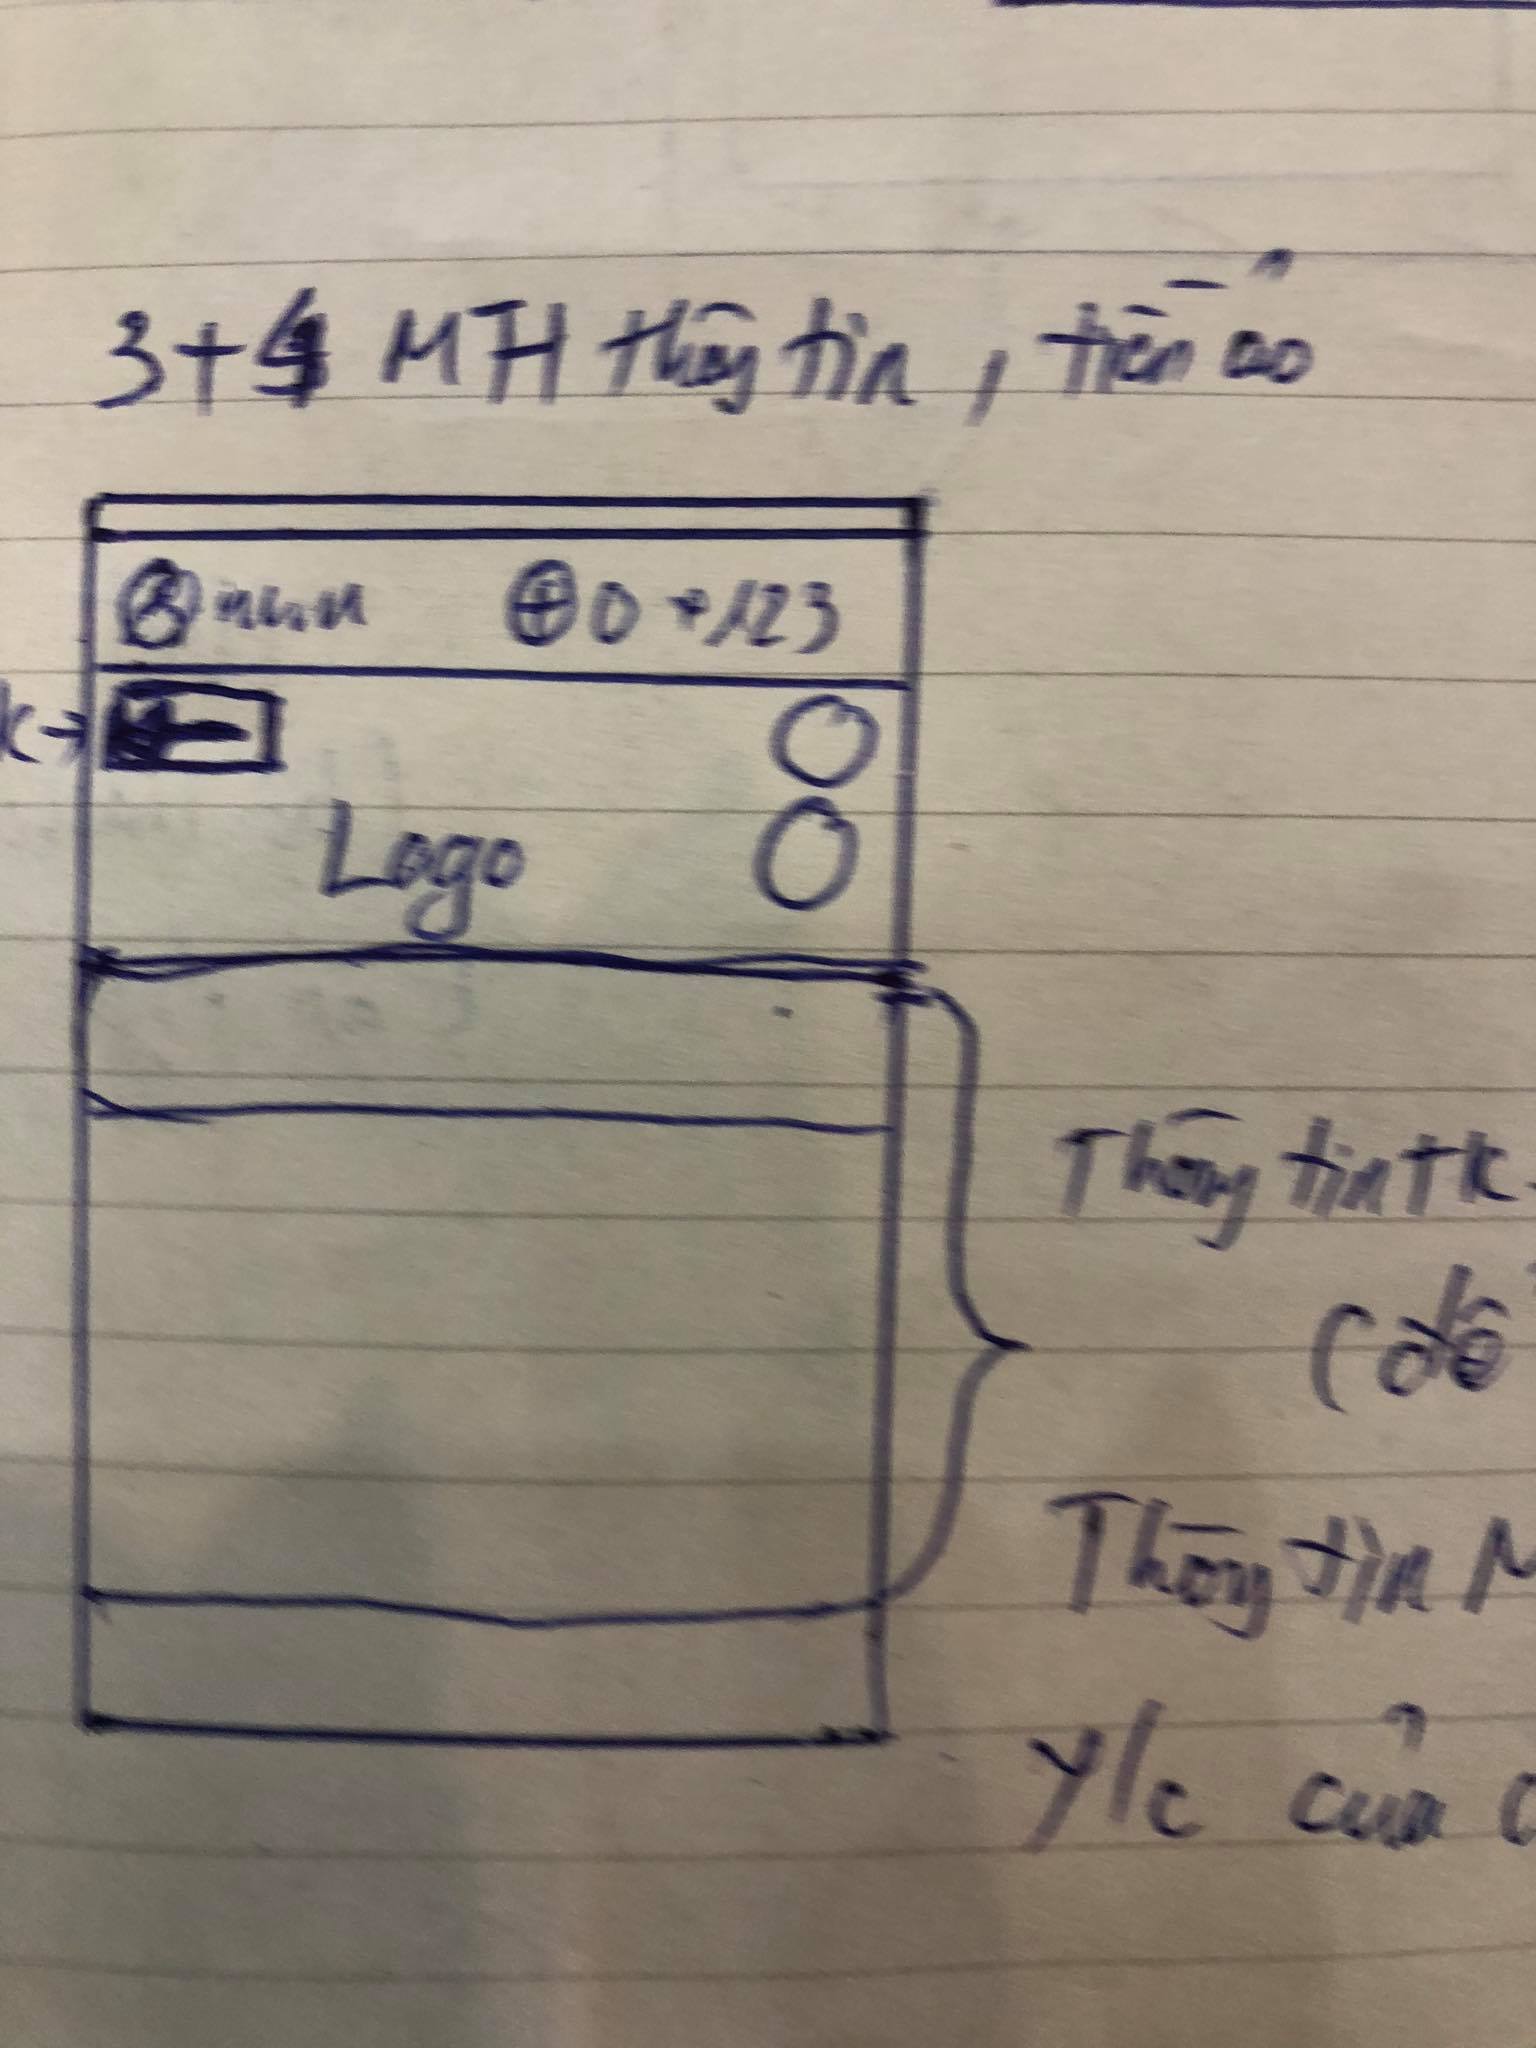 3+4 MTH thông tin, tiền ảo
0 +123
Logo
Thông tin tk
(để
Thông tin
y/c của